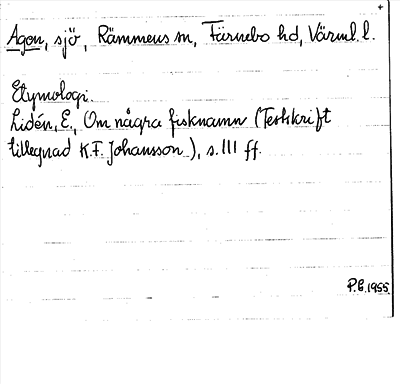 Agen, sjö, Rämmens sn, Färnebo hd, Värml. l.
Etymologi.
Lidén, E., Om några fisknamn (Festskrift
tillegnad K.F. Johansson), s. 111 ff.
P.E. 1955